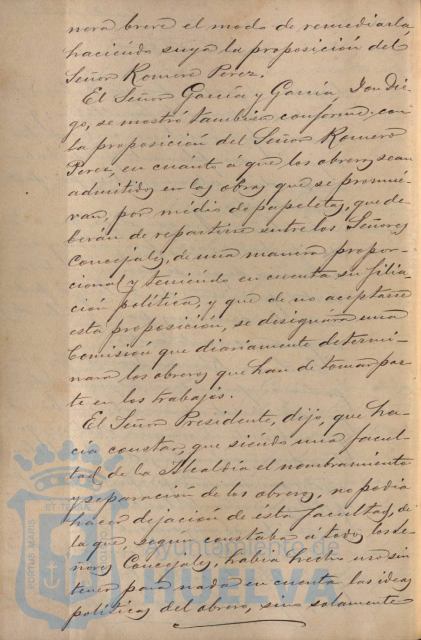 nera breve el modo de remediarla,
haciendo suya la proposición del
Señor Romero Perez.
El Señor García y García, Don Die-
go, se mostró tambien conforme con
la proposición del Señor Romero
Perez, en cuánto á que los obreros sean
admitidos en las obras que se promue-
van, por médio de papeletas, que de-
berán de repartirse entre los Señores
Concejales, de una manera propor-
cional y teniendo en cuenta su filia-
ción política, y que de no aceptarse
esta proposición, se designára una
Comisión que diariamente determi-
nara los obreros que han de tomar par-
te en los trabajos.
El Señor Presidente, dijo, que ha-
cía constar, que siendo una facul-
tad de la Alcaldía el nombramiento
y separación de los obreros, no podia
hacer dejación de ésta facultad, de
la que segun constaba a todos los se-
ñores Concejales, había hecho uso sin
tener para nada en cuenta las ideas
políticas del obrero, sino solamente
PORTUS MARIS ET TERRAE CUSTODIA
Ayuntamiento de
HUELVA